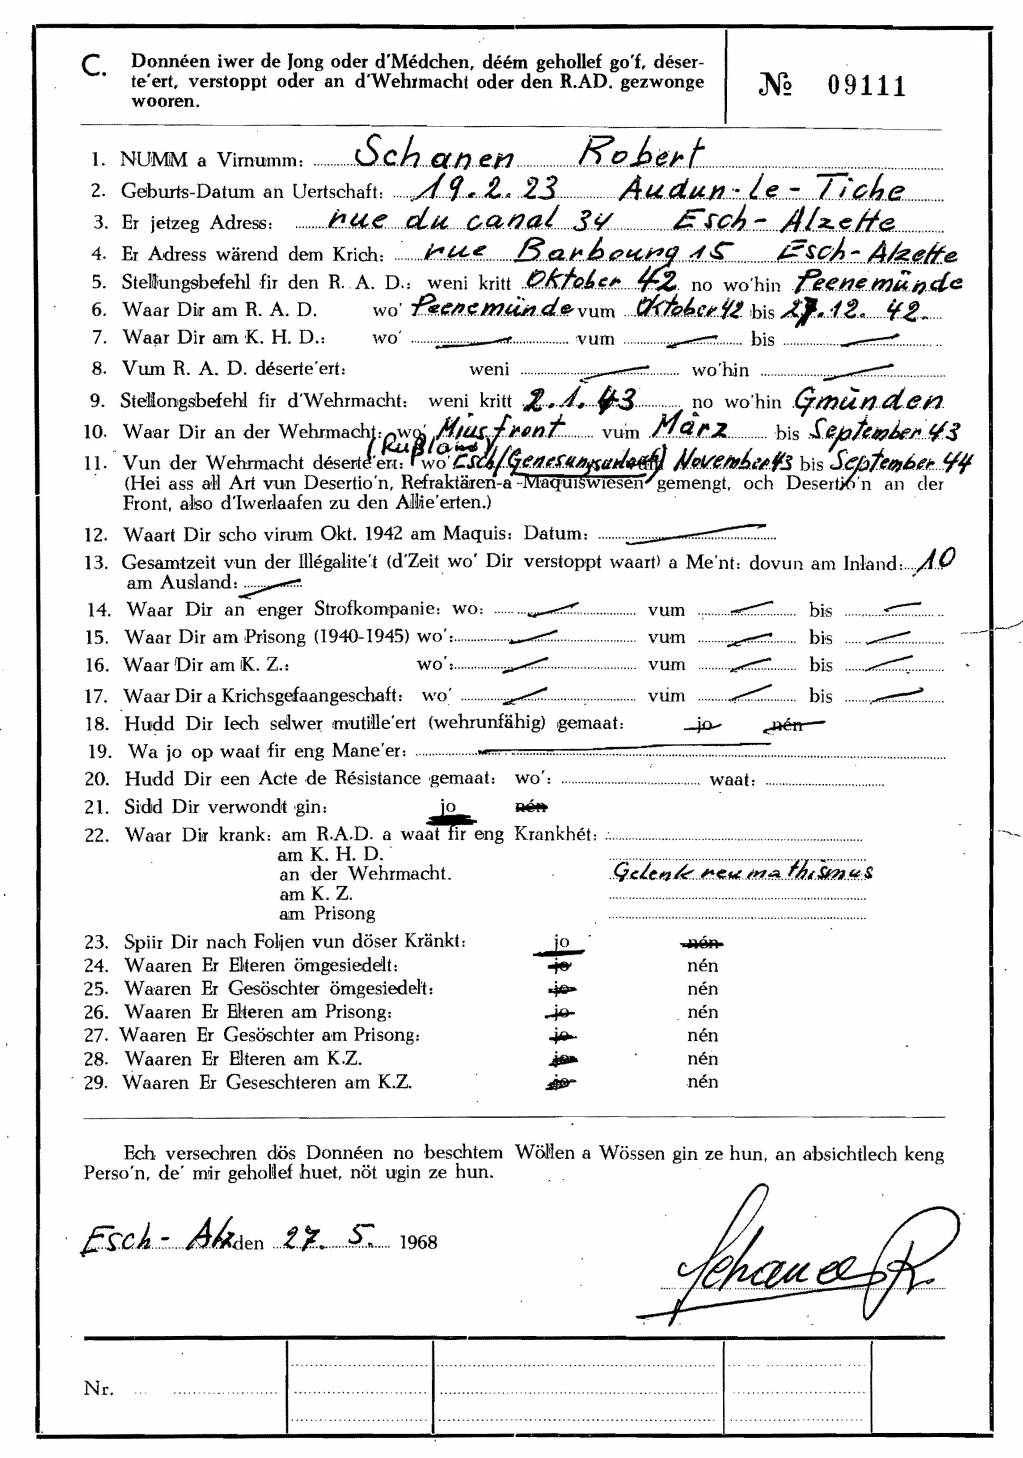 C. Donnéen iwer de Jong oder d'Médchen, déém gehollef go'f, déser-
te'ert, verstoppt oder an d'Wehrmacht oder den R.AD. gezwonge
wooren.
№ 09111
1. NUMM a Virnumm: Schanen Robert
2. Geburts-Datum an Uertschaft: 19.2.23 Audun-le-Tiche
3. Er jetzeg Adress: rue du canal 34 Esch-Alzette
4. Er Adress wärend dem Krich: rue Barbourg 15 Esch-Alzette
5. Stellungsbefehl fir den R. A. D.: weni kritt Oktober 42 no wo'hin Peenemünde
6. Waar Dir am R. A. D. wo' Peenemünde vum Oktober 42 bis 27.12. 42.
7. Waar Dir am K. H. D.: wo' vum bis
8. Vum R. A. D. déserte'ert: weni wo'hin
9. Stellongsbefehl fir d'Wehrmacht: weni kritt 2.1.43 no wo'hin Gmünden
10. Waar Dir an der Wehrmacht: wo' Miusfront vum März bis September 43
(Rußland)
11. Vun der Wehrmacht déserte'ert: wo' Esch (Genesungsurlaub) November 43 bis September 44
(Hei ass all Art vun Desertio'n, Refraktären-a-Maquiswiesen gemengt, och Desertio'n an der
Front, also d'Iwerlaafen zu den Allie'erten.)
12. Waart Dir scho virum Okt. 1942 am Maquis: Datum:
13. Gesamtzeit vun der Illégalite't (d'Zeit wo' Dir verstoppt waart) a Me'nt: dovun am Inland: 10
am Ausland:
14. Waar Dir an enger Strofkompanie: wo: vum bis
15. Waar Dir am Prisong (1940-1945) wo': vum bis
16. Waar Dir am K. Z.: wo': vum bis
17. Waar Dir a Krichsgefaangeschaft: wo' vum bis
18. Hudd Dir Iech selwer mutille'ert (wehrunfähig) gemaat: jo nén
19. Wa jo op waat fir eng Mane'er:
20. Hudd Dir een Acte de Résistance gemaat: wo': waat:
21. Sidd Dir verwondt gin: jo nén
22. Waar Dir krank: am R.A.D. a waat fir eng Krankhét:
am K. H. D.
an der Wehrmacht. Gelenkreumathismus
am K. Z.
am Prisong
23. Spiir Dir nach Foljen vun döser Kränkt: jo nén
24. Waaren Er Elteren ömgesiedelt: jo nén
25. Waaren Er Gesöschter ömgesiedelt: jo nén
26. Waaren Er Elteren am Prisong: jo nén
27. Waaren Er Gesöschter am Prisong: jo nén
28. Waaren Er Elteren am K.Z. jo nén
29. Waaren Er Geseschteren am K.Z. jo nén
Ech versechren dös Donnéen no beschtem Wöllen a Wössen gin ze hun, an absichtlech keng
Perso'n, de' mir gehollef huet, nöt ugin ze hun.
Esch-Alz den 27. 5. 1968
Schanen R.
Nr.